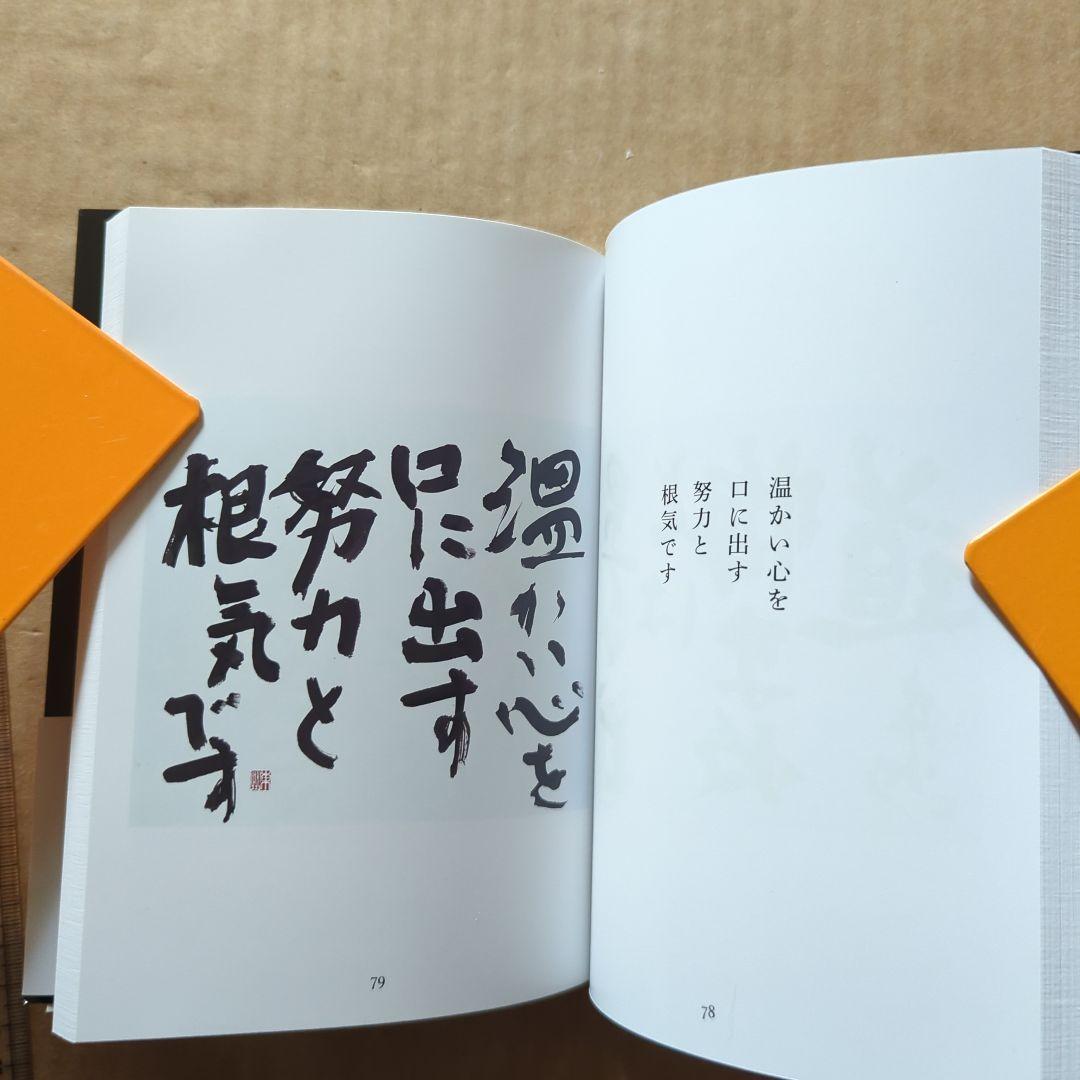 温かい心を
口に出す
努力と
根気です
78
温かい心を
口に出す
努力と
根気です
79